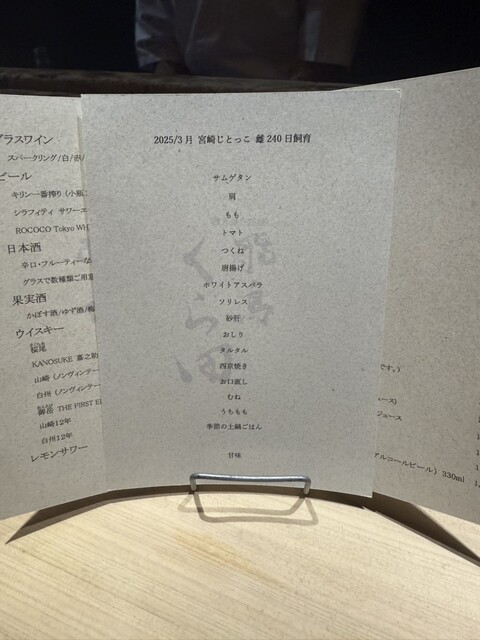 グラスワイン
スパークリング/白/赤/
ビール
キリン一番搾り（小瓶
シラフィティ サワーエ
ROCOCO Tokyo WH
日本酒
辛口・フルーティーな
グラスで数種類ご用意
果実酒
かぼす酒/ゆず酒/梅
ウイスキー
桜尾
KANOSUKE 嘉之助
山崎（ノンヴィンテー
白州（ノンヴィンテー
御岳 THE FIRST E
山崎12年
白州12年
レモンサワー
2025/3月 宮崎じとっこ 雌240日飼育
サムゲタン
肩
もも
トマト
つくね
唐揚げ
ホワイトアスパラ
ソリレス
砂肝
おしり
タルタル
西京焼き
お口直し
むね
うちもも
季節の土鍋ごはん
甘味
です。）
ュース)
ジュース
アルコールビール）330ml